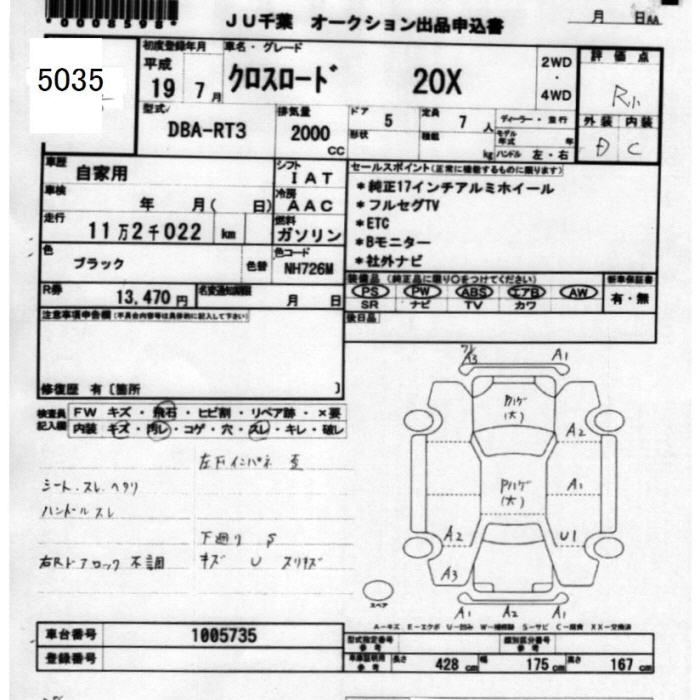 *0008598*
JU千葉 オークション出品申込書
月 日AA
5035
初度登録年月
平成
19 7月
車名・グレード
クロスロード 20X
2WD
・
4WD
評価点
R小
外装 内装
D C
型式
DBA-RT3
排気量
2000
CC
ドア
5
形状
定員
7人
積載
kg
ディーラー・並行
モデル年式 年
ハンドル 左・右
車歴
自家用
シフト
IAT
車検
年 月( 日)
冷房
AAC
走行
11万2千022 km
燃料
ガソリン
色
ブラック
色替
色コード
NH726M
R券
13,470円
名変通知期限
月 日
セールスポイント(正常に機能するものに限ります)
*純正17インチアルミホイール
*フルセグTV
*ETC
*Bモニター
*社外ナビ
装備品 (純正品に限り○をつけてください)
PS PW ABS エアB AW
SR ナビ TV カワ
新車保証書
有・無
後日品
注意事項申告欄(不具合内容等は具体的に記入して下さい)
修復歴 有〔箇所 〕
検査員
記入欄
FW キズ・飛石・ヒビ割・リペア跡・×要
内装 キズ・汚レ・コゲ・穴・スレ・キレ・破レ
左下インパネ 歪
シート.スレ ヘタリ
ハンドルスレ
下廻り S
右Rドアロック 不調
キズ U スリキズ
A3 A1
ハゲ
(大)
A2
Pハゲ
(大)
A1
A2 U1
A3
A1 A2 A1
スペア
A-キズ E-エクボ U-凹み W-補修跡 S-サビ C-腐食 XX-交換済
車台番号 1005735
登録番号
型式指定番号
参考
類別区分番号
参考
車庫証明用
参考
長さ 428cm 幅 175cm 高さ 167cm